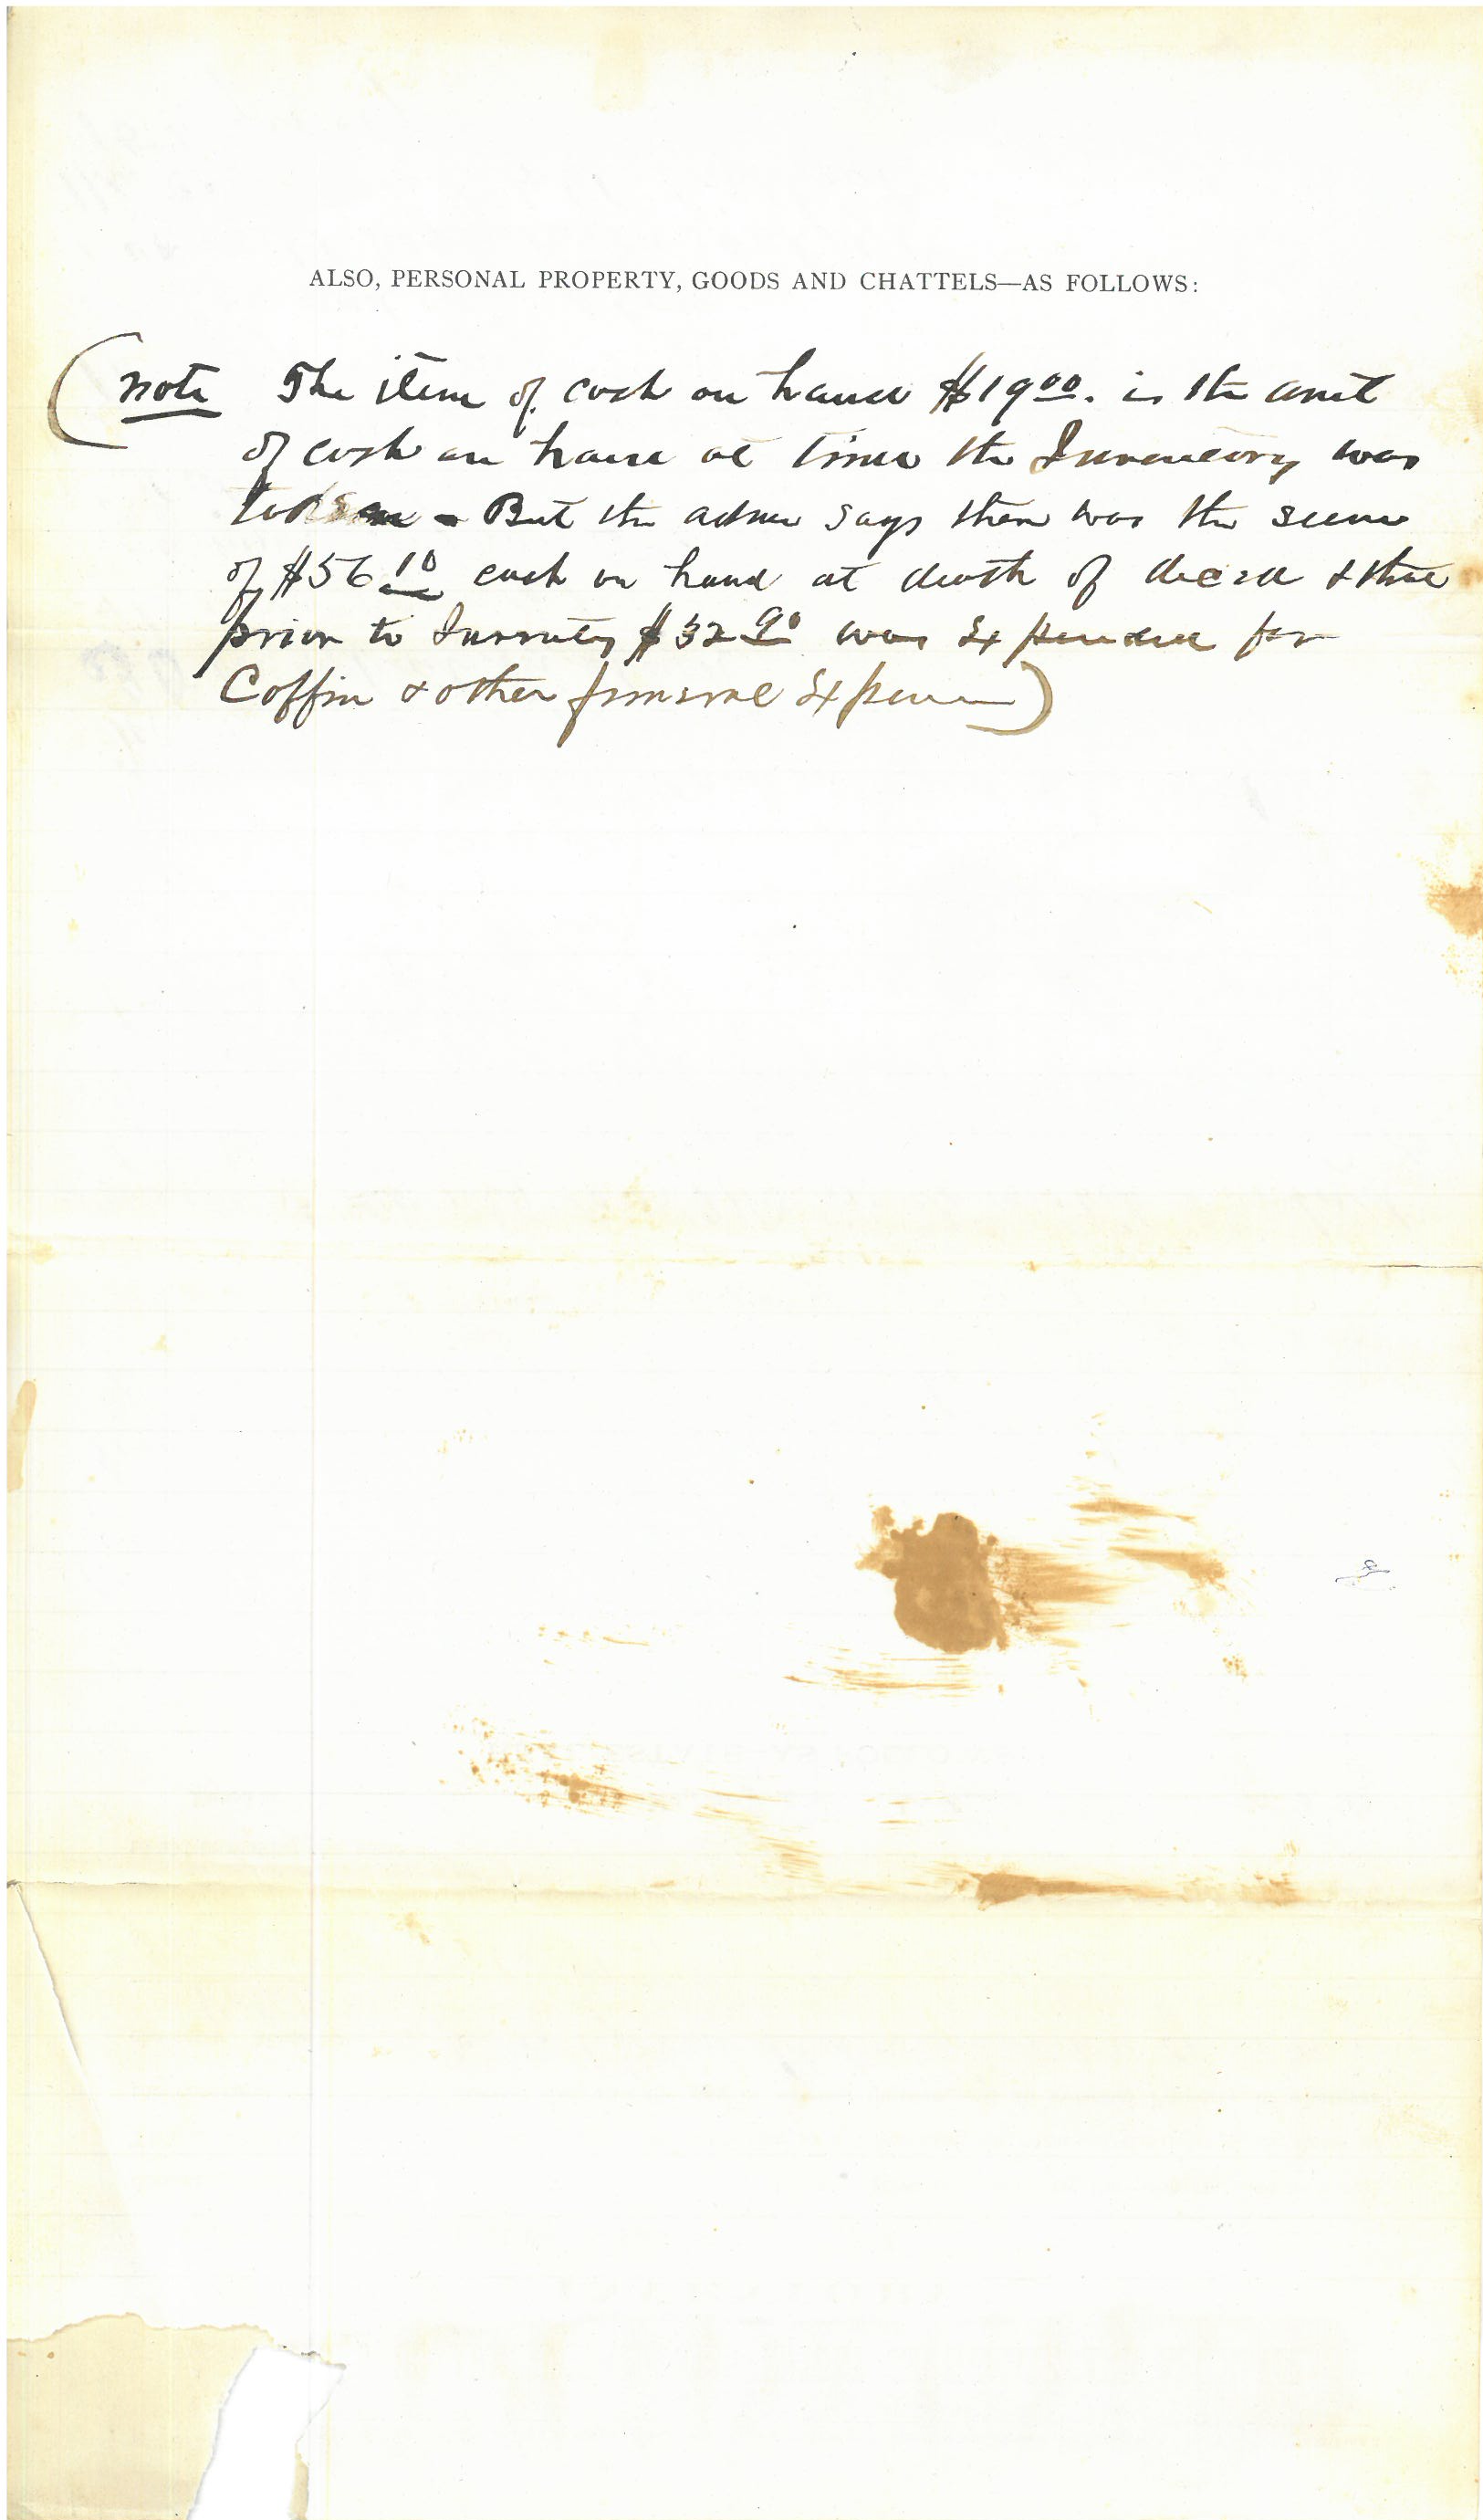 ALSO, PERSONAL PROPERTY, GOODS AND CHATTELS—AS FOLLOWS:
(note The item of cash on hand $19.00. is the amt
of cash on hand at time the Inventory was
taken - But the admr says there was the sum
of $56.10 cash on hand at death of decsd & that
prior to Inventy $32.90 was Expended for
Coffin & other funeral Expenses)